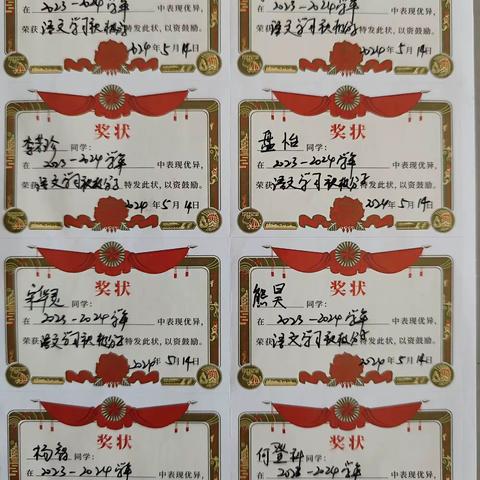 在 2023-2024学年 中表现优异,
荣获 语文学习积极分子 特发此状,以资鼓励。
2024年 5月 14日
在 2023-2024学年 中表现优异,
荣获 语文学习积极分子 特发此状,以资鼓励。
2024年 5月 14日
奖状
同学:
在 2023-2024学年 中表现优异,
荣获 语文学习积极分子 特发此状,以资鼓励。
2024年 5月 14日
奖状
孟怡 同学:
在 2023-2024学年 中表现优异,
荣获 语文学习积极分子 特发此状,以资鼓励。
2024年 5月 14日
奖状
同学:
在 2023-2024学年 中表现优异,
荣获 语文学习积极分子 特发此状,以资鼓励。
2024年 5月 14日
奖状
熊昊 同学:
在 2023-2024学年 中表现优异,
荣获 语文学习积极分子 特发此状,以资鼓励。
2024年 5月 14日
奖状
杨智 同学:
在 2023-2024学年 中表现优异,
奖状
何登科 同学:
在 2023-2024学年 中表现优异,